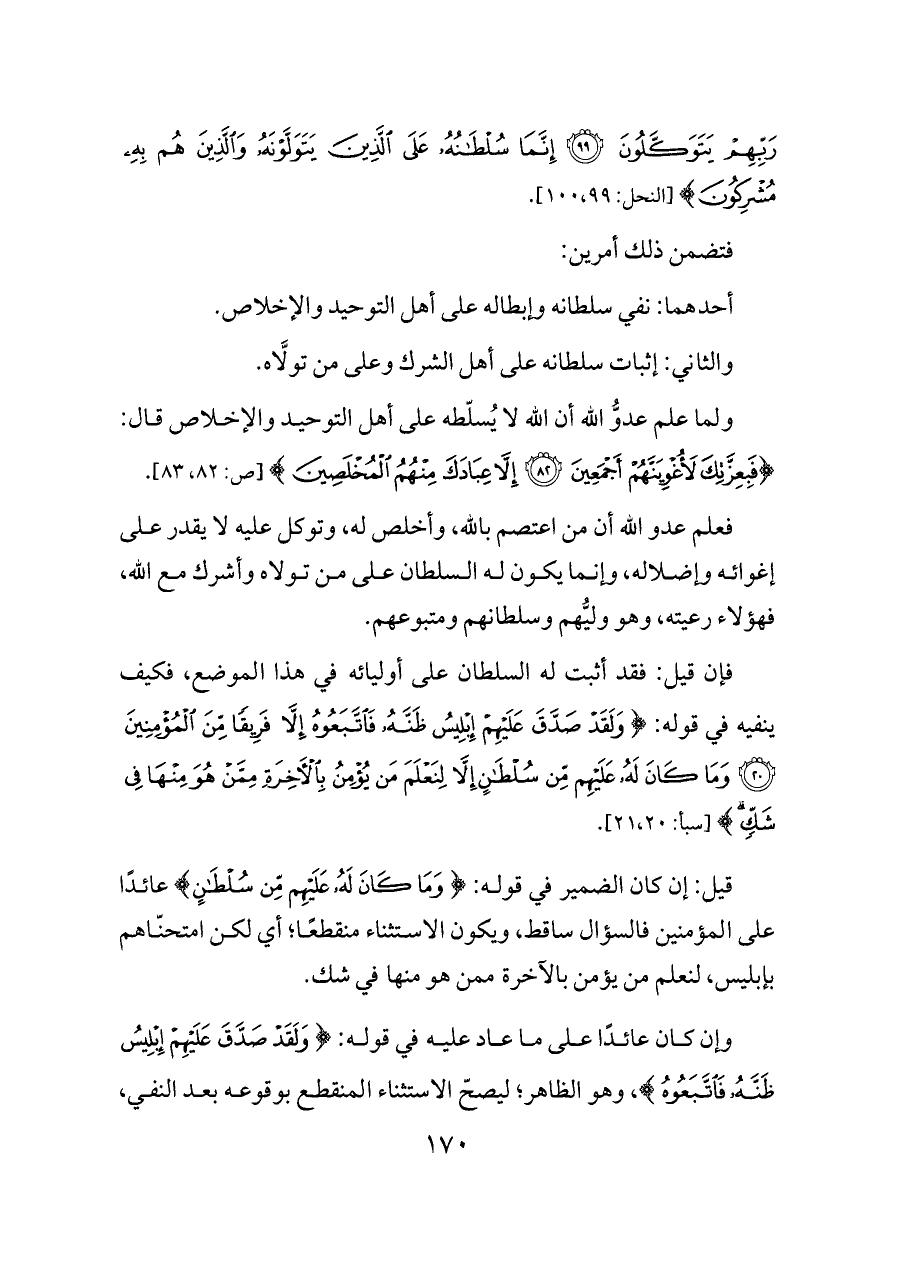 رَبِّهِمْ يَتَوَكَّلُونَ ۝٩٩ إِنَّمَا سُلْطَٰنُهُۥ عَلَى ٱلَّذِينَ يَتَوَلَّوْنَهُۥ وَٱلَّذِينَ هُم بِهِۦ
مُشْرِكُونَ ﴾ [النحل: ٩٩، ١٠٠].
فتضمن ذلك أمرين:
أحدهما: نفي سلطانه وإبطاله على أهل التوحيد والإخلاص.
والثاني: إثبات سلطانه على أهل الشرك وعلى من تولَّاه.
ولما علم عدوُّ الله أن الله لا يُسلّطه على أهل التوحيد والإخلاص قال:
﴿فَبِعِزَّتِكَ لَأُغْوِيَنَّهُمْ أَجْمَعِينَ ۝٨٢ إِلَّا عِبَادَكَ مِنْهُمُ ٱلْمُخْلَصِينَ ﴾ [ص: ٨٢، ٨٣].
فعلم عدو الله أن من اعتصم بالله، وأخلص له، وتوكل عليه لا يقدر على
إغوائه وإضلاله، وإنما يكون له السلطان على من تولاه وأشرك مع الله،
فهؤلاء رعيته، وهو وليُّهم وسلطانهم ومتبوعهم.
فإن قيل: فقد أثبت له السلطان على أوليائه في هذا الموضع، فكيف
ينفيه في قوله: ﴿ وَلَقَدْ صَدَّقَ عَلَيْهِمْ إِبْلِيسُ ظَنَّهُۥ فَٱتَّبَعُوهُ إِلَّا فَرِيقًا مِّنَ ٱلْمُؤْمِنِينَ
۝٢٠ وَمَا كَانَ لَهُۥ عَلَيْهِم مِّن سُلْطَٰنٍ إِلَّا لِنَعْلَمَ مَن يُؤْمِنُ بِٱلْءَاخِرَةِ مِمَّنْ هُوَ مِنْهَا فِى
شَكٍّۗ ﴾ [سبأ: ٢٠، ٢١].
قيل: إن كان الضمير في قوله: ﴿ وَمَا كَانَ لَهُۥ عَلَيْهِم مِّن سُلْطَٰنٍ﴾ عائدًا
على المؤمنين فالسؤال ساقط، ويكون الاستثناء منقطعًا؛ أي لكن امتحنّاهم
بإبليس، لنعلم من يؤمن بالآخرة ممن هو منها في شك.
وإن كان عائدًا على ما عاد عليه في قوله: ﴿ وَلَقَدْ صَدَّقَ عَلَيْهِمْ إِبْلِيسُ
ظَنَّهُۥ فَٱتَّبَعُوهُ ﴾، وهو الظاهر؛ ليصحّ الاستثناء المنقطع بوقوعه بعد النفي،
١٧٠